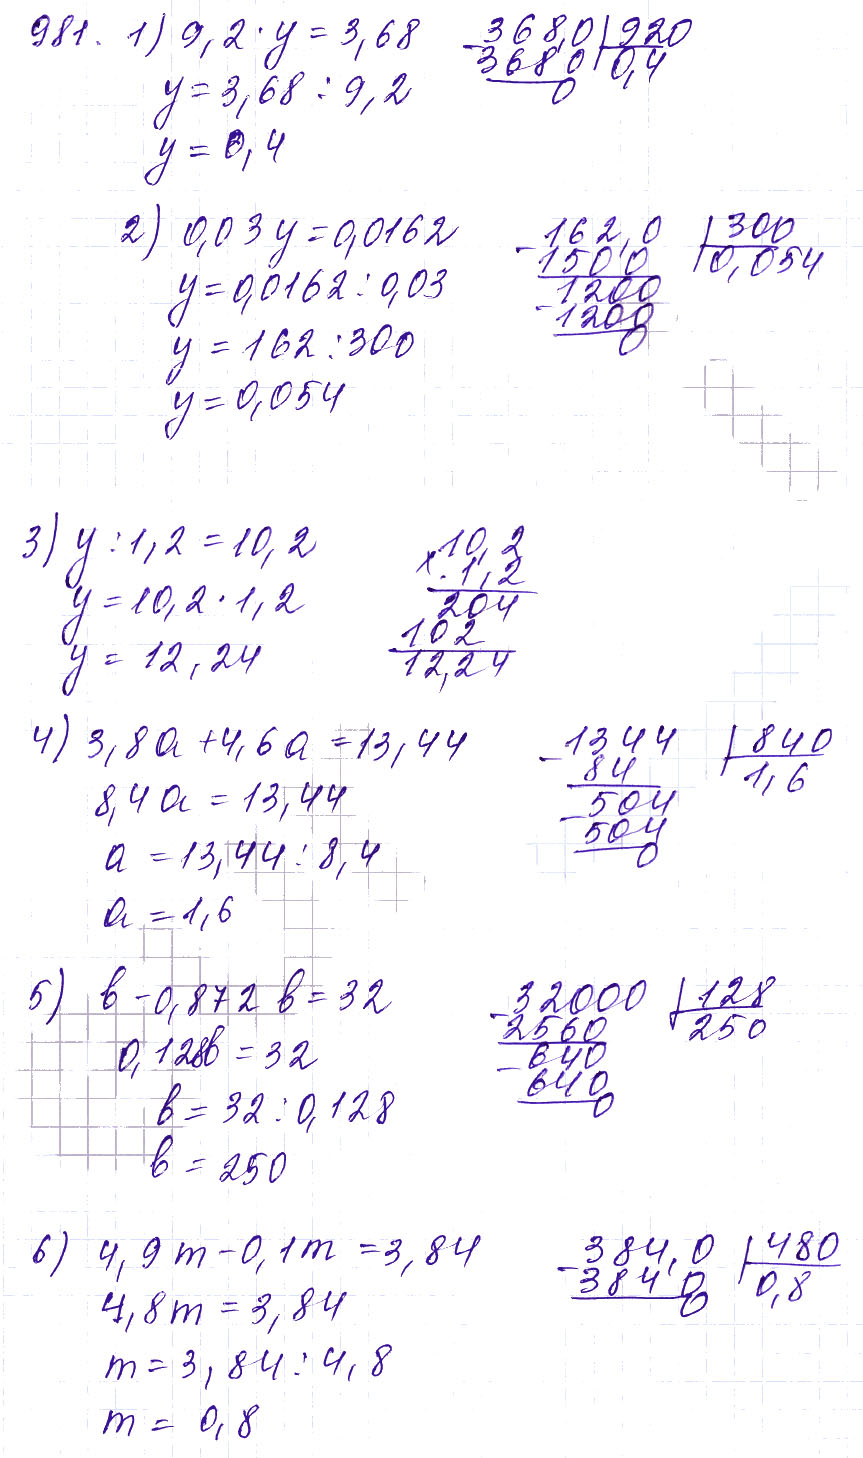 981. 1) 9,2 · y = 3,68
y = 3,68 : 9,2
y = 0,4
368,0 | 920
- 368 0 | 0,4
0
2) 0,03 y = 0,0162
y = 0,0162 : 0,03
y = 162 : 300
y = 0,054
- 162,0 | 300
150 0 | 0,054
1200
- 1200
0
3) y : 1,2 = 10,2
y = 10,2 · 1,2
y = 12,24
10,2
x 1,2
204
102
12,24
4) 3,8a + 4,6a = 13,44
8,4a = 13,44
a = 13,44 : 8,4
a = 1,6
- 1344 | 840
84 | 1,6
504
- 504
0
5) в - 0,872 в = 32
0,128в = 32
в = 32 : 0,128
в = 250
- 32000 | 128
2560 | 250
640
- 640
0
6) 4,9m - 0,1m = 3,84
4,8m = 3,84
m = 3,84 : 4,8
m = 0,8
- 384,0 | 480
384 0 | 0,8
0